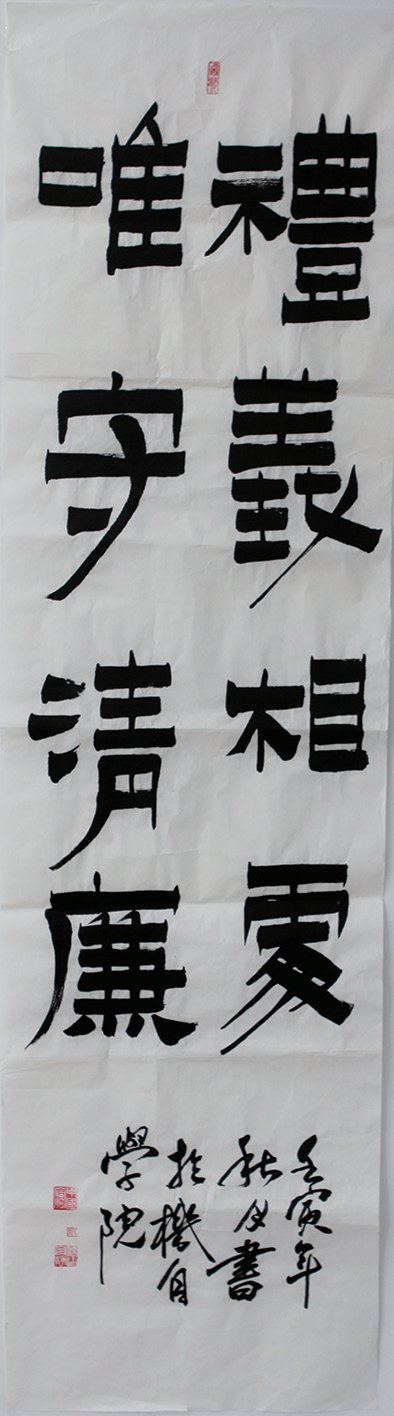 禮義相處
唯守清廉
壬寅年
秋月書
於機自
學院